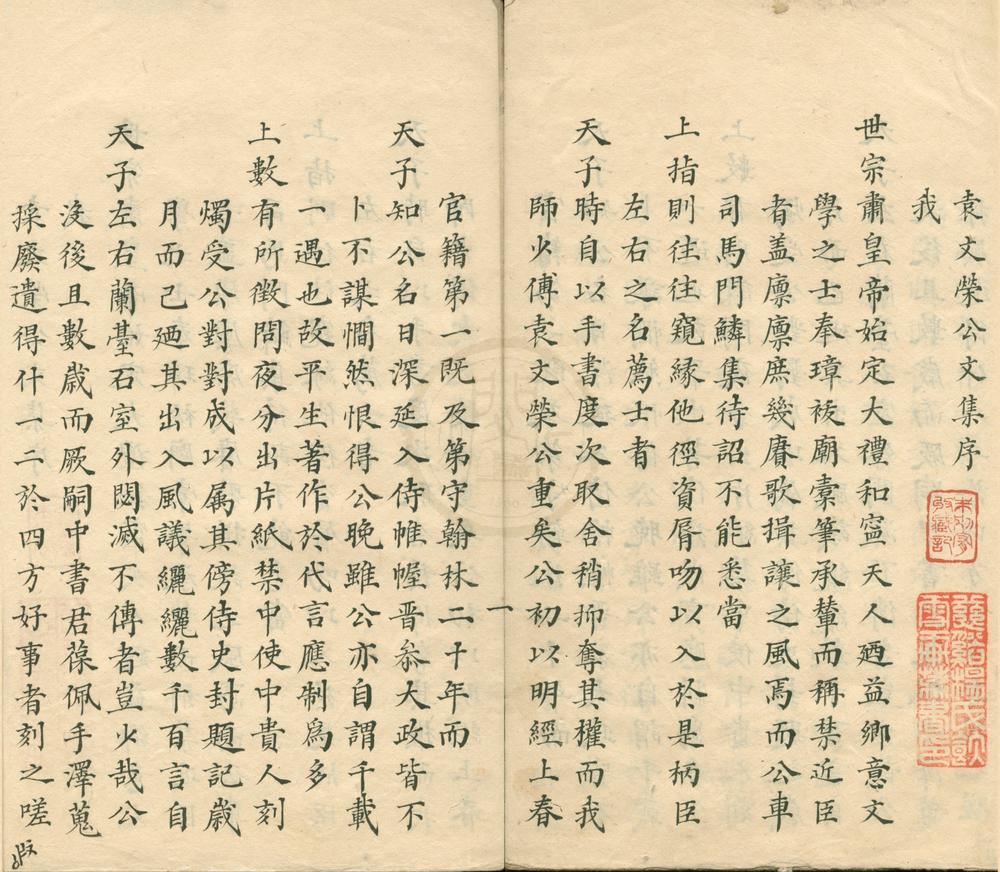 袁文榮公文集序
我
世宗肅皇帝始定大禮和寍天人廼益鄉意文
學之士奉璋祓廟橐筆承輦而稱禁近臣
者盖廩廩庶幾賡歌揖讓之風焉而公車
司馬門鱗集待詔不能悉當
上指則往往窺緣他徑資脣吻以入於是柄臣
左右之名薦士者
天子時自以手書度次取舍稍抑奪其權而我
師少傅袁文榮公重矣公初以明經上春
一
官籍第一既及第守翰林二十年而
天子知公名日深延入侍帷幄晋叅大政皆不
卜不謀憪然恨得公晚雖公亦自謂千載
一遇也故平生著作於代言應制爲多
上數有所徵問夜分出片紙禁中使中貴人刻
燭受公對對成以属其傍侍史封題記歳
月而已廼其出入風議纚纚數千百言自
天子左右蘭臺石室外閟滅不傳者豈少哉公
沒後且數歲而厥嗣中書君葆佩手澤蒐
採廢遺得什一二於四方好事者刻之嗟